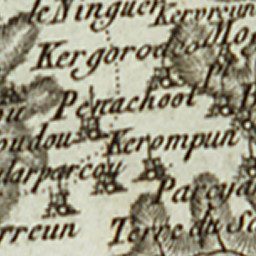 le Ninguen
Kervreun
Kergoroc
Penachoot
oudou
Kerompun
larparcou
Parcya
rreun
Terre du Sa